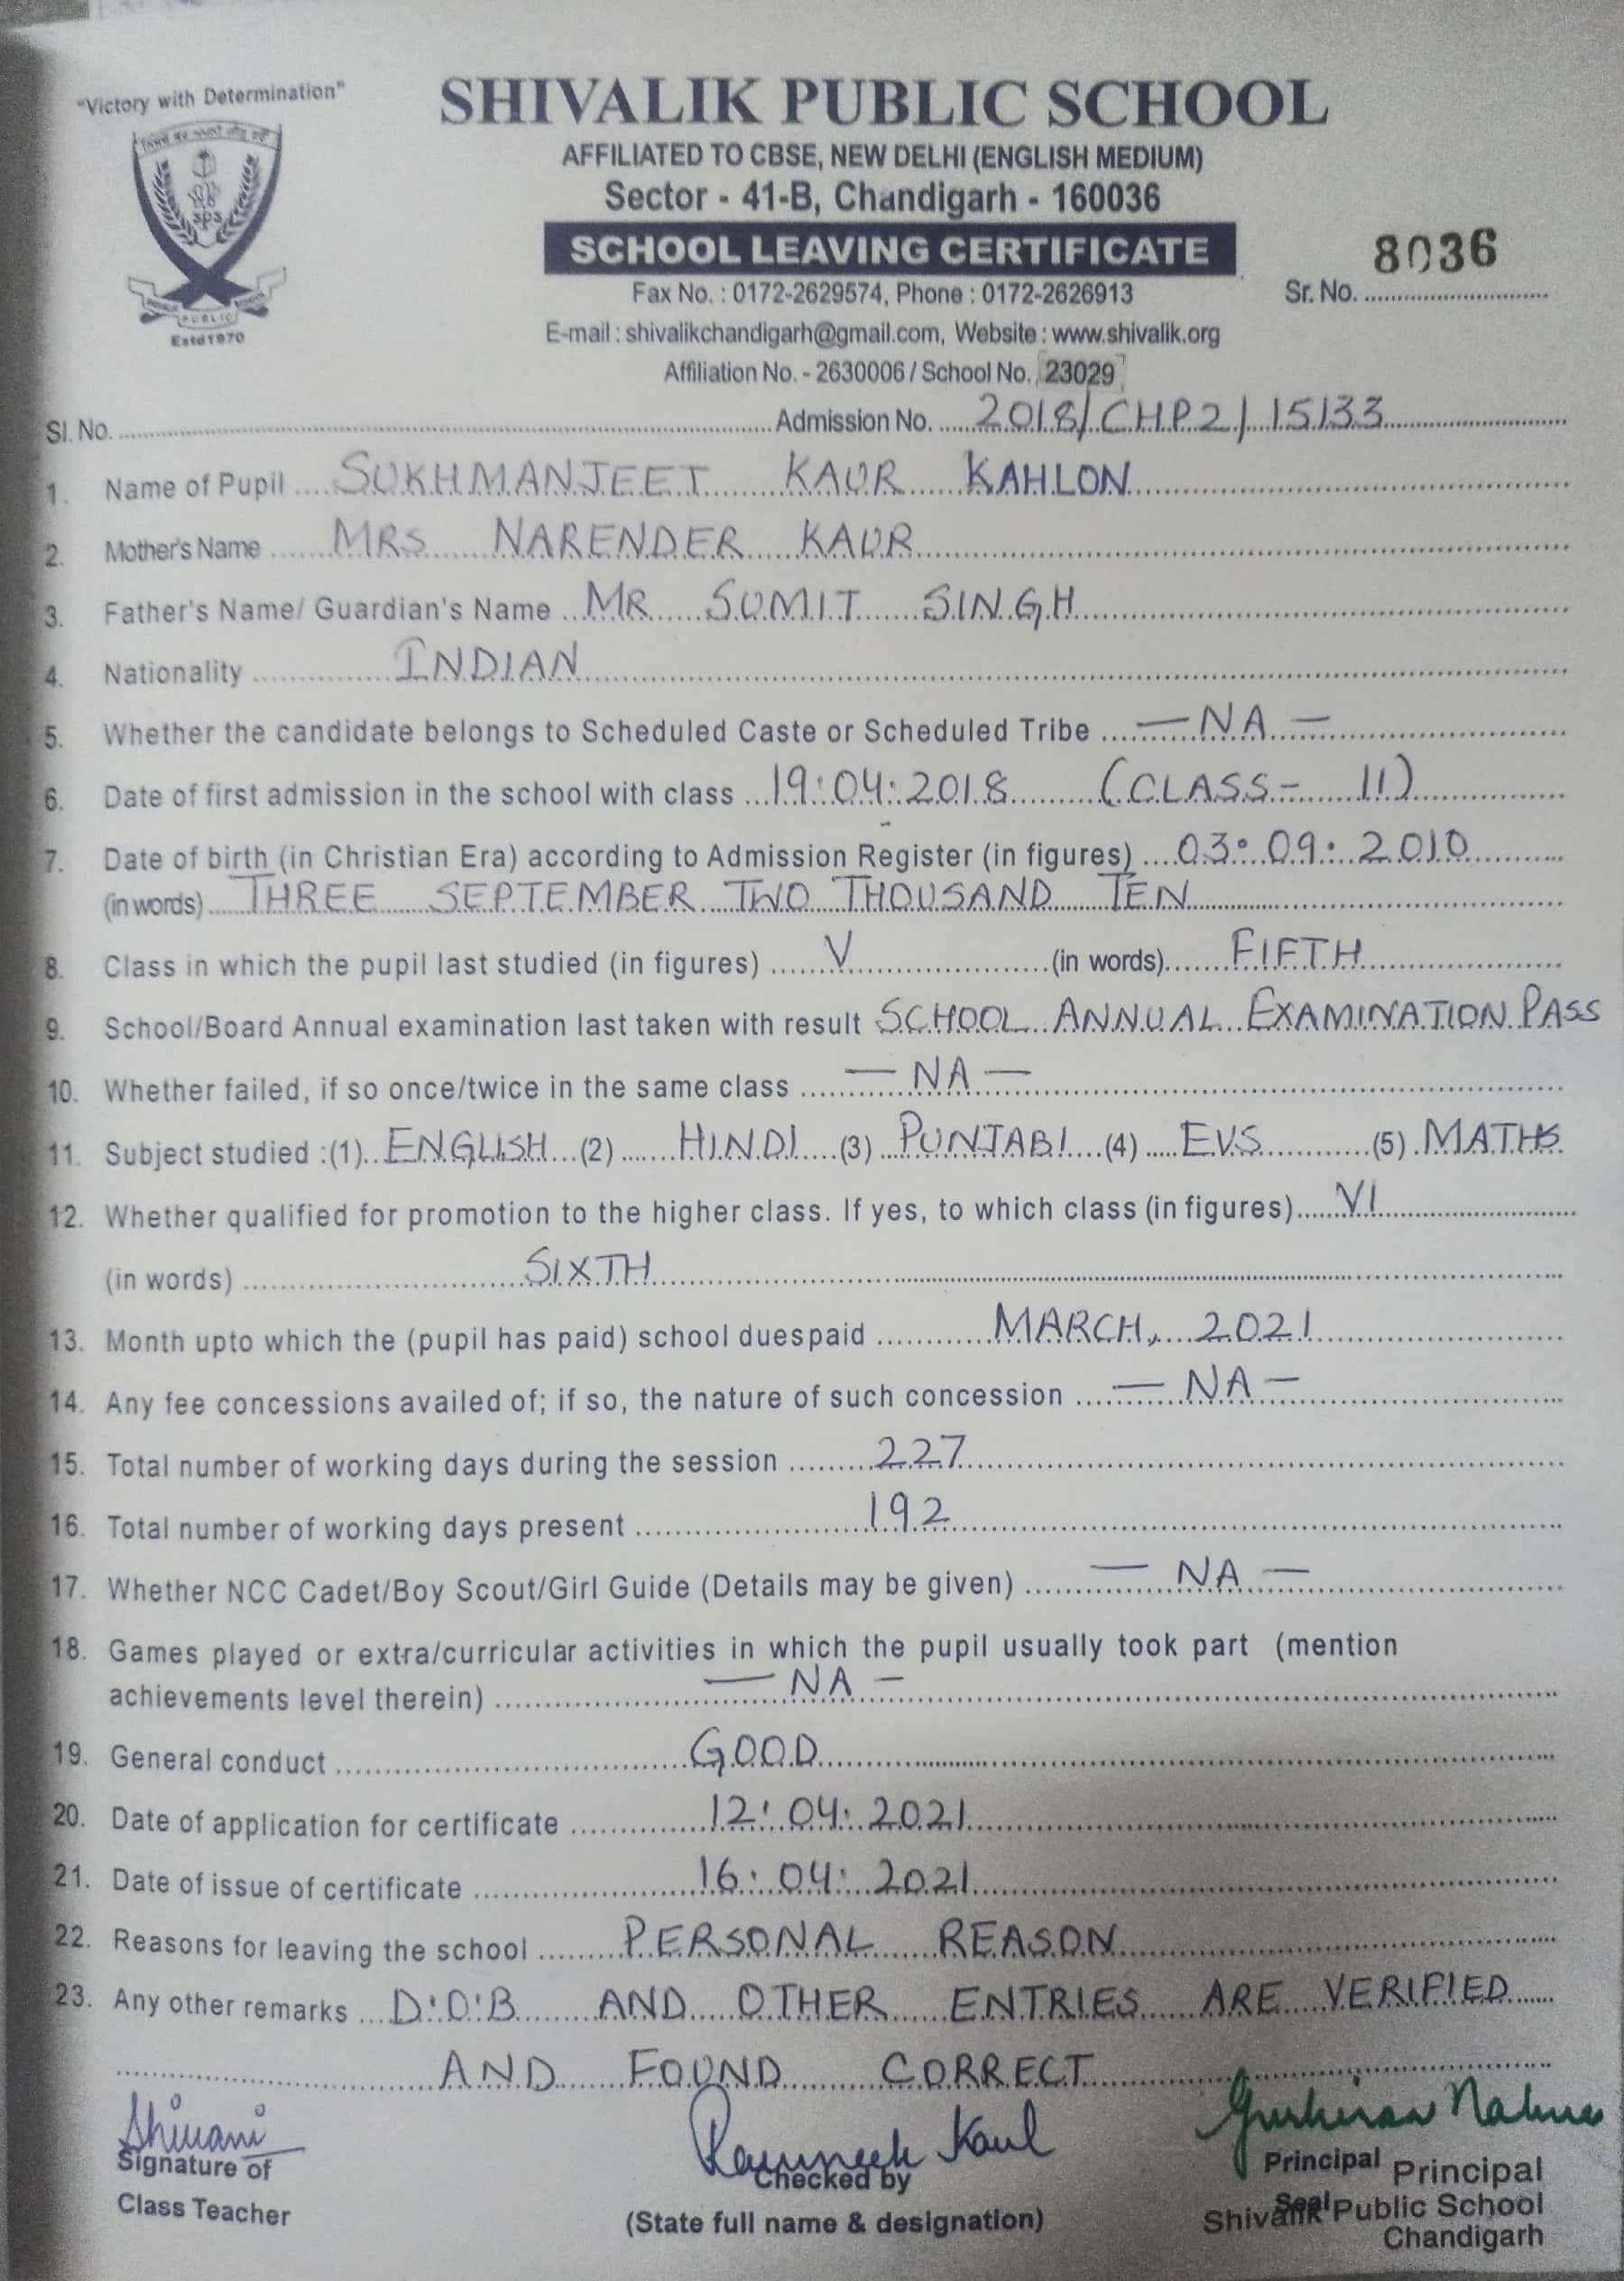 "Victory with Determination"
SHIVALIK PUBLIC SCHOOL
AFFILIATED TO CBSE, NEW DELHI (ENGLISH MEDIUM)
Sector - 41-B, Chandigarh - 160036
SCHOOL LEAVING CERTIFICATE
sps
PUBLIC
Estd 1970
8036
Fax No. : 0172-2629574, Phone : 0172-2626913
Sr. No.
E-mail : shivalikchandigarh@gmail.com, Website : www.shivalik.org
Affiliation No. - 2630006 / School No. 23029
Sl. No. Admission No. 2018/CHP2/15133
1. Name of Pupil SUKHMANJEET KAUR KAHLON
2. Mother's Name MRS NARENDER KAUR
3. Father's Name/ Guardian's Name MR SUMIT SINGH
4. Nationality INDIAN
5. Whether the candidate belongs to Scheduled Caste or Scheduled Tribe — NA —
6. Date of first admission in the school with class 19:04:2018 (CLASS- II)
7. Date of birth (in Christian Era) according to Admission Register (in figures) 03:09:2010
(in words) THREE SEPTEMBER TWO THOUSAND TEN
8. Class in which the pupil last studied (in figures) V (in words) FIFTH
9. School/Board Annual examination last taken with result SCHOOL ANNUAL EXAMINATION PASS
10. Whether failed, if so once/twice in the same class — NA —
11. Subject studied :(1) ENGLISH (2) HINDI (3) PUNJABI (4) EVS (5) MATHS
12. Whether qualified for promotion to the higher class. If yes, to which class (in figures) VI
(in words) SIXTH
13. Month upto which the (pupil has paid) school duespaid MARCH, 2021
14. Any fee concessions availed of; if so, the nature of such concession — NA —
15. Total number of working days during the session 227
16. Total number of working days present 192
17. Whether NCC Cadet/Boy Scout/Girl Guide (Details may be given) — NA —
18. Games played or extra/curricular activities in which the pupil usually took part (mention
achievements level therein) — NA —
19. General conduct GOOD
20. Date of application for certificate 12:04:2021
21. Date of issue of certificate 16:04:2021
22. Reasons for leaving the school PERSONAL REASON
23. Any other remarks D.O.B AND OTHER ENTRIES ARE VERIFIED
AND FOUND CORRECT
Shivani
Signature of
Class Teacher
Kaul
Checked by
(State full name & designation)
Principal
Seal
Principal
Shivalik Public School
Chandigarh